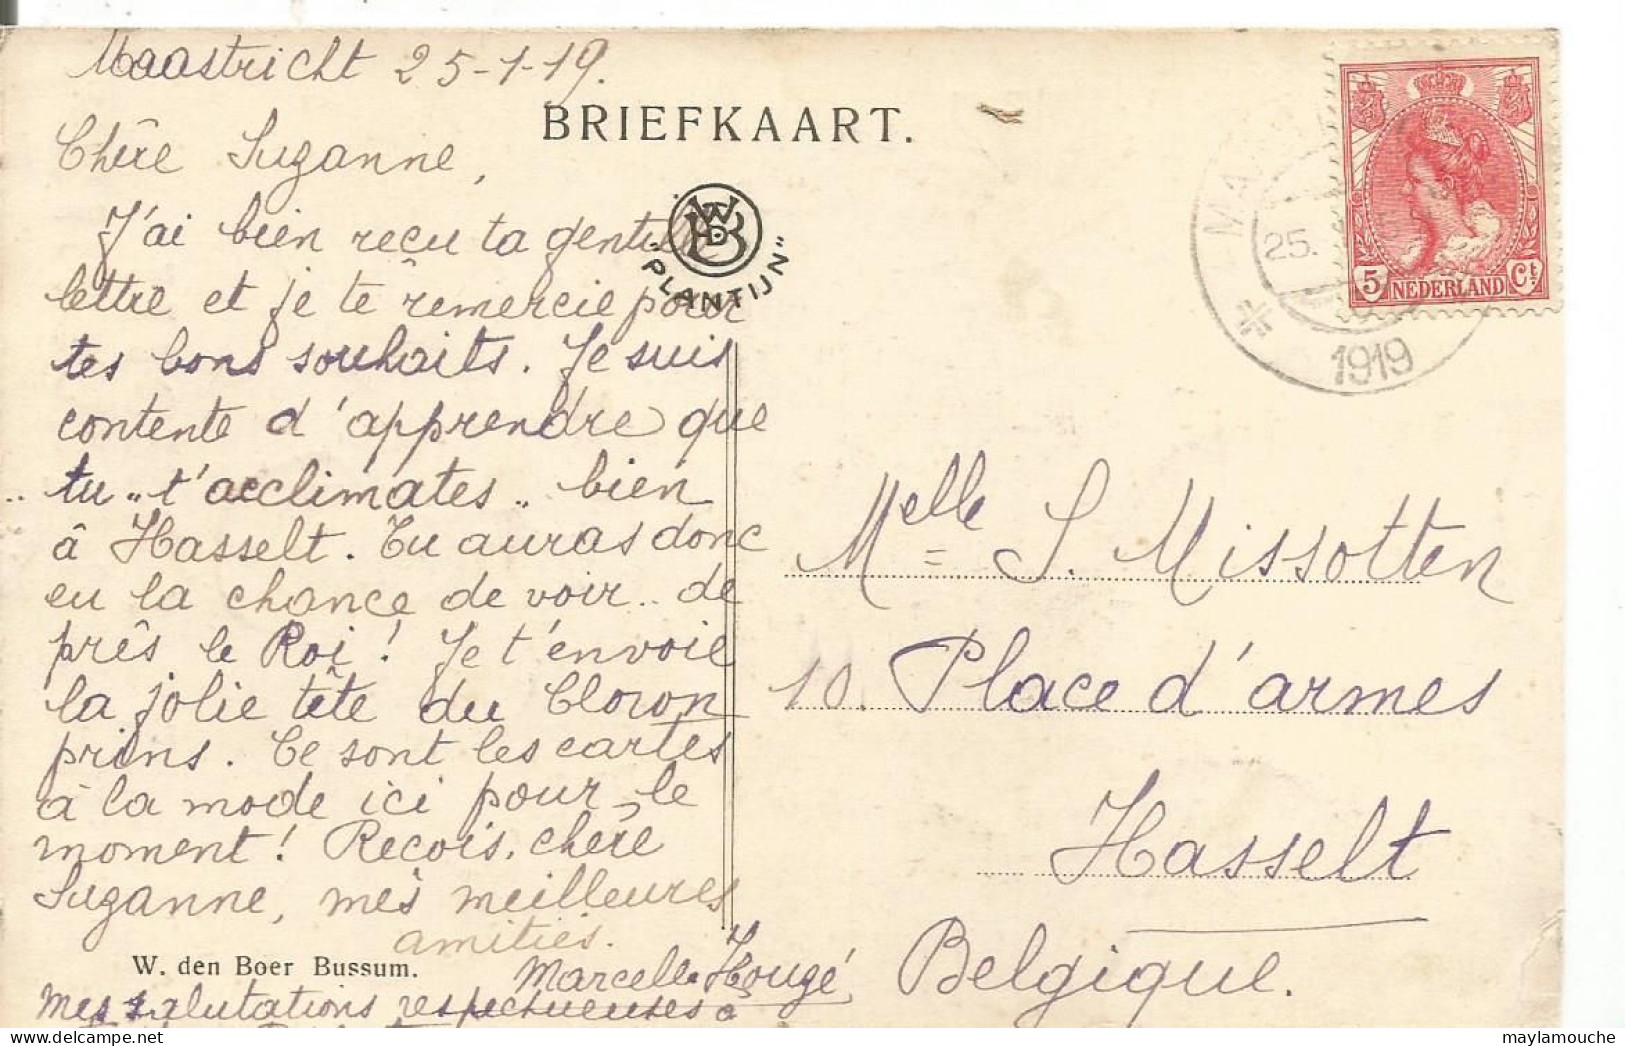 Maastricht 25-1-19.
BRIEFKAART.
Chère Suzanne,
J'ai bien reçu ta gentille
lettre et je te remercie pour
tes bons souhaits. Je suis
contente d'apprendre que
tu "t'acclimates" bien
à Hasselt. Tu auras donc
eu la chance de voir.. de
près le Roi! Je t'envoie
la jolie tête du Cloron
prins. Ce sont les cartes
à la mode ici pour le
moment! Reçois, chère
Suzanne, mes meilleures
amitiés.
Marcelle
W. den Boer Bussum.
Mes salutations respectueuses à
WDB
"PLANTIJN"
25.
1919
5 NEDERLAND Ct.
Melle S. Missotten
10. Place d'armes
Hasselt
Belgique.
maylamouche